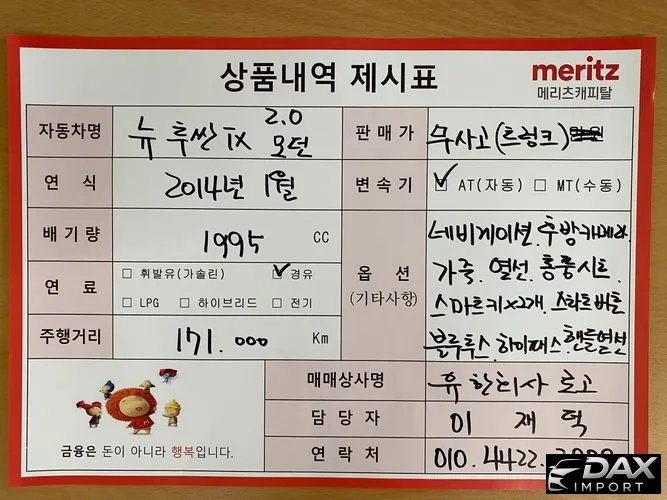 상품내역 제시표
meritz
메리츠캐피탈
자동차명
뉴 투싼 ix 2.0 모던
판매가
무사고(트렁크)
연 식
2014년 1월
변속기
☑ AT(자동) □ MT(수동)
배기량
1995 CC
옵 션
(기타사항)
네비게이션.후방카메라
가죽.열선.통풍시트.
스마트키x2개.스타트버튼
블루투스.하이패스.핸들열선
연 료
□ 휘발유(가솔린) ☑ 경유
□ LPG □ 하이브리드 □ 전기
주행거리
171.000 Km
금융은 돈이 아니라 행복입니다.
매매상사명
유한회사
담 당 자
이 재 덕
연 락 처
010.4422.
DAX
IMPORT